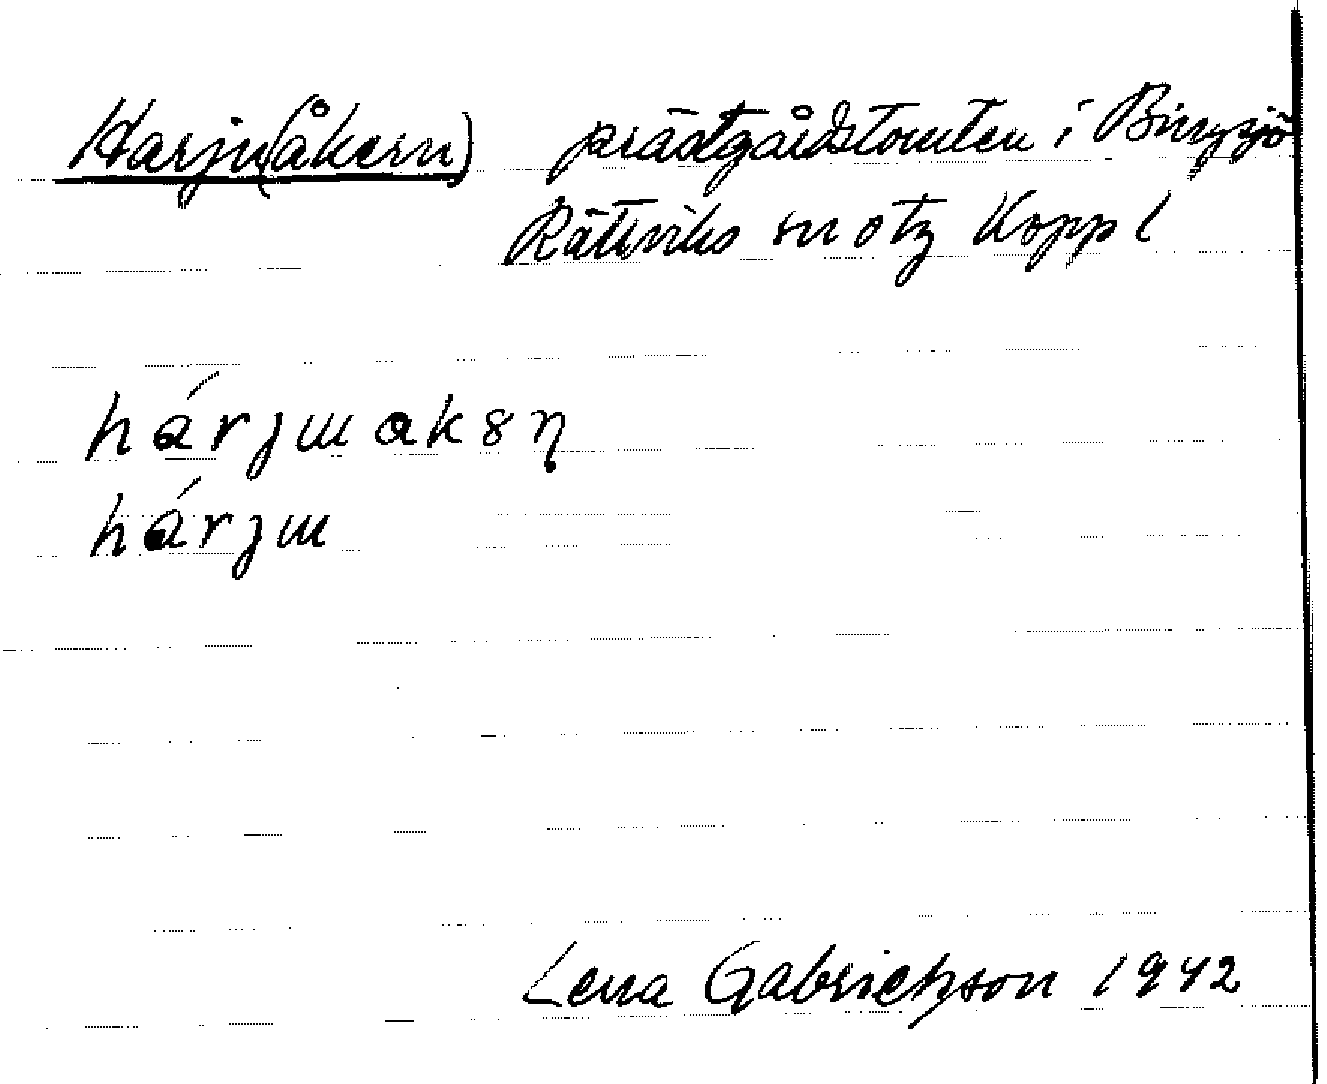 Harju(åkern) prästgårdstomten i Bingsjö
Rättviks sn otz Koppl
hárjɯakȣη
hárjɯ
Lena Gabrielsson 1942